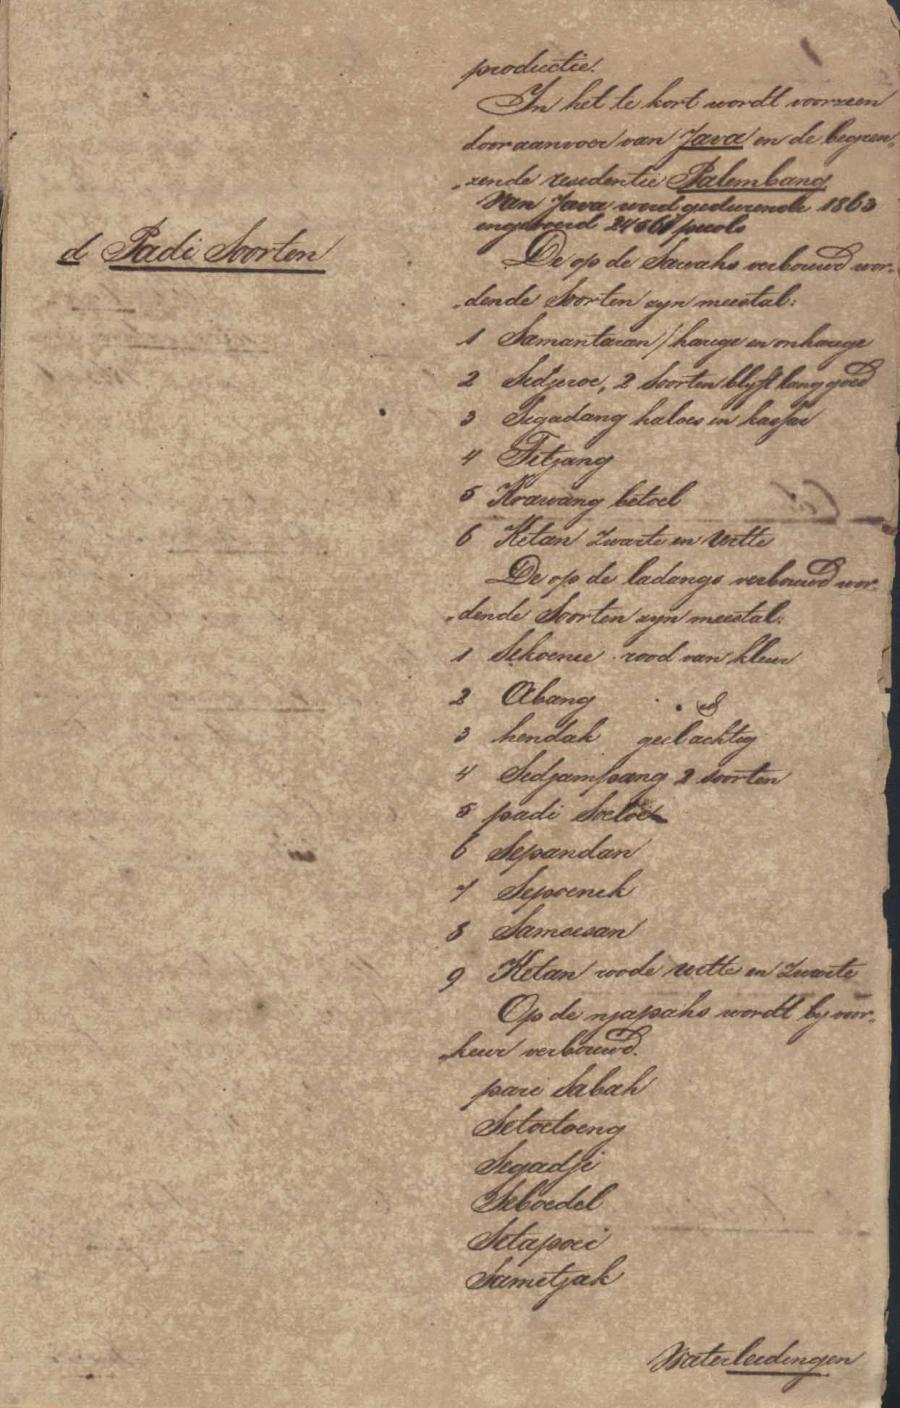 productie.
In het te kort wordt voorzien
door aanvoer van Java en de begren„
„zende residentie Palembang
Van Java werd gedurende 1863
ingevoerd 24661 picols
d Padi Soorten
De op de Sawahs verbouwd wor„
„dende Soorten zyn meestal:
1 Samantaran / harige en onharige
2 Sedjeroe, 2 Soorten blyft lang goed
3 Segadang haloes en kasar
4 Titjang
5 Krawang betoel
6 Ketan zwarte en witte
De op de ladangs verbouwd wor„
„dende Soorten zyn meestal:
1 Sekoenie rood van kleur
2 Abang
3 hendak geelachteg
4 Sedjampang 2 soorten
5 padi
6 Sepandan
7 Sepoenek
8 Samoesan
9 Ketan roode witte en zwarte
Op de njapahs wordt by voor„
„keur verbouwd.
pari Sabah
Setoetoeng
Segadje
Seboedel
Setapoei
Sametjak
Waterleidingen